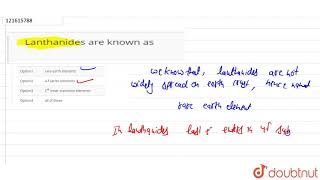 121615788
Lanthanides are known as
Option1 rare earth elements
Option2 4f series elements
Option3 1st inner transition elements
Option4 all of these
we know that, lanthanides are not
widely spread on earth crust, hence named
rare earth element
In lanthanides last e⁻ enters in 4f sub
doubtnut